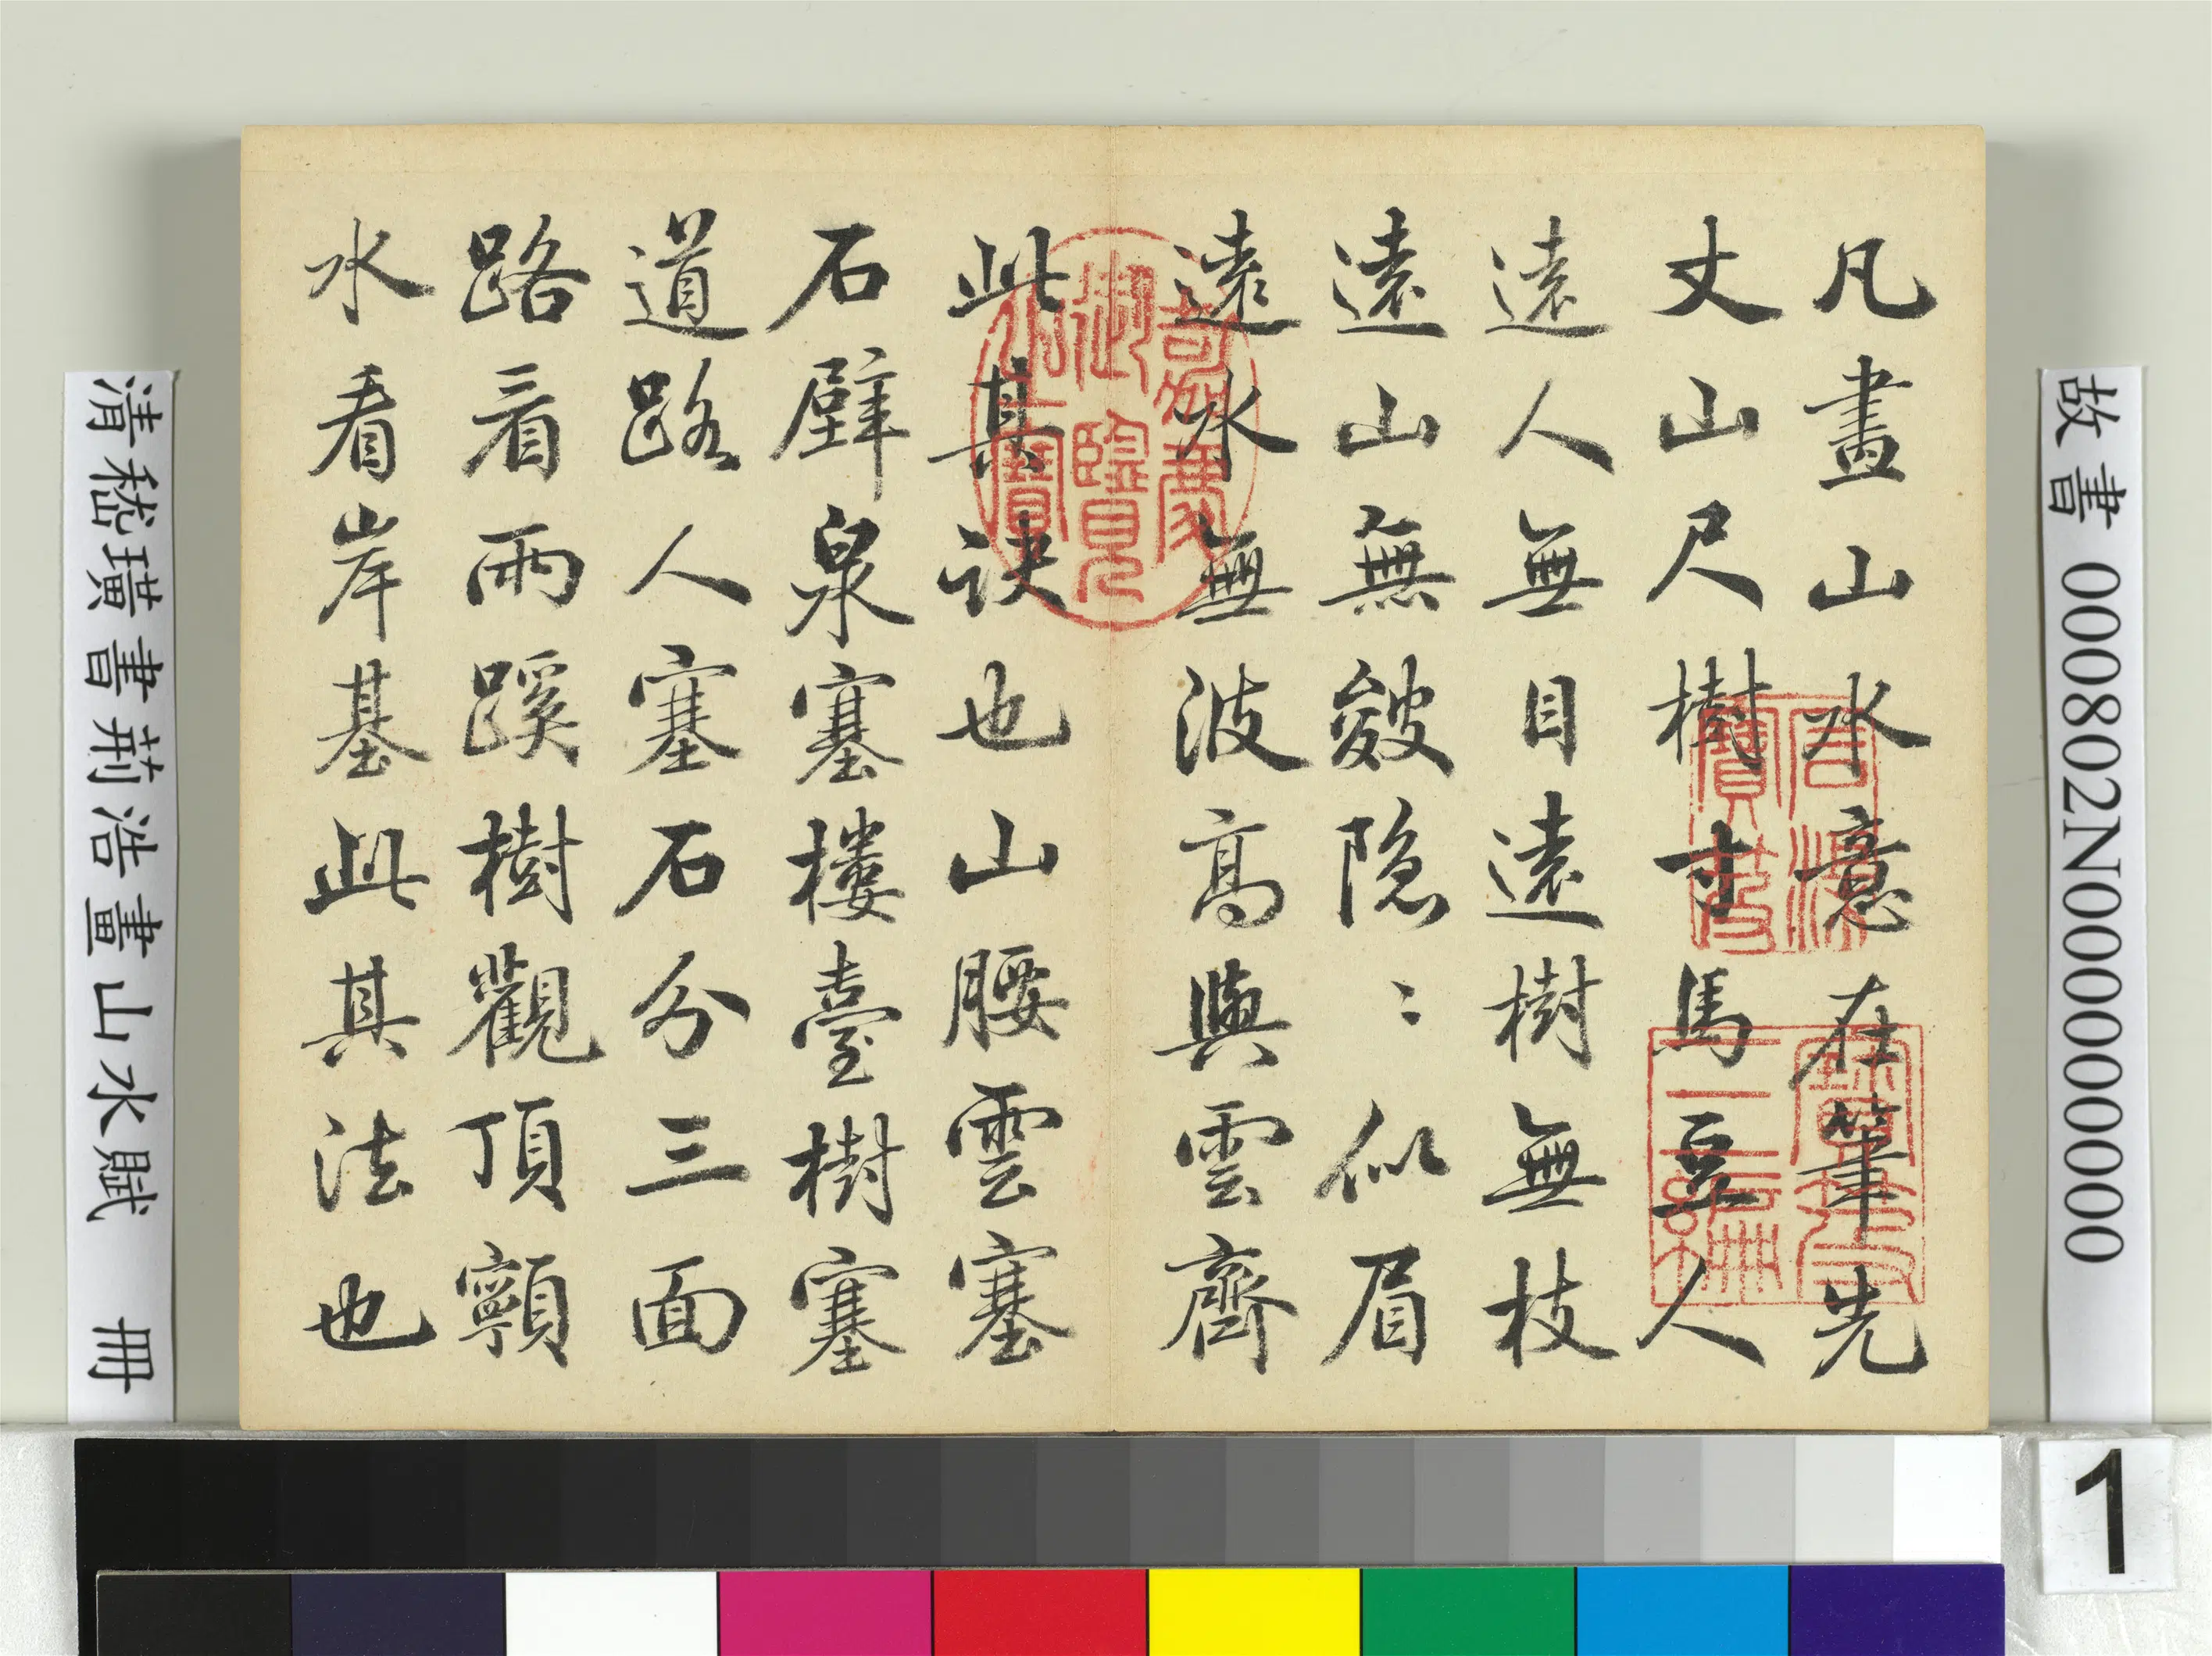 故書 000802N000000000
凡畫山水意在筆先
丈山尺樹寸馬豆人
遠人無目遠樹無枝
遠山無皴隐〻似眉
遠水無波高與雲齊
此其訣也山腰雲塞
石壁泉塞樓臺樹塞
道路人塞石分三面
路看兩蹊樹觀頂顊
水看岸基此其法也
清嵇璜書荊浩畫山水賦 冊
嘉慶御覽之寶
石渠寶笈
1